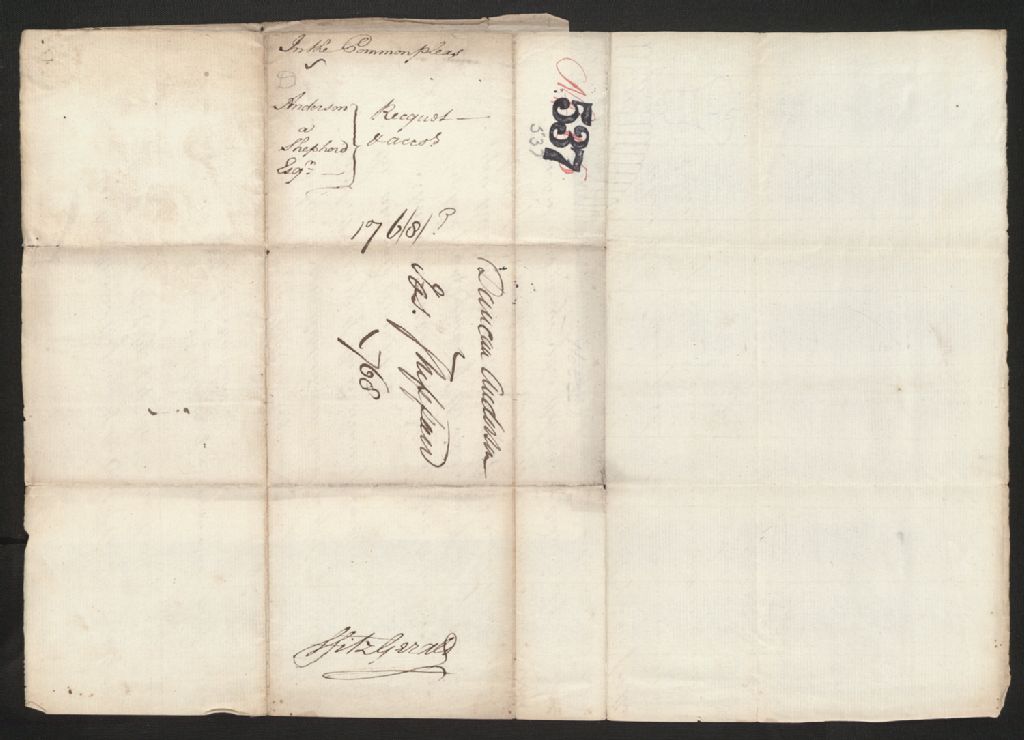 In the Common pleas
D
Anderson
a
Shepherd
Esqr.
Request
& accot
1768
537
537
Duncan Anderson
1768
Fitzgerald